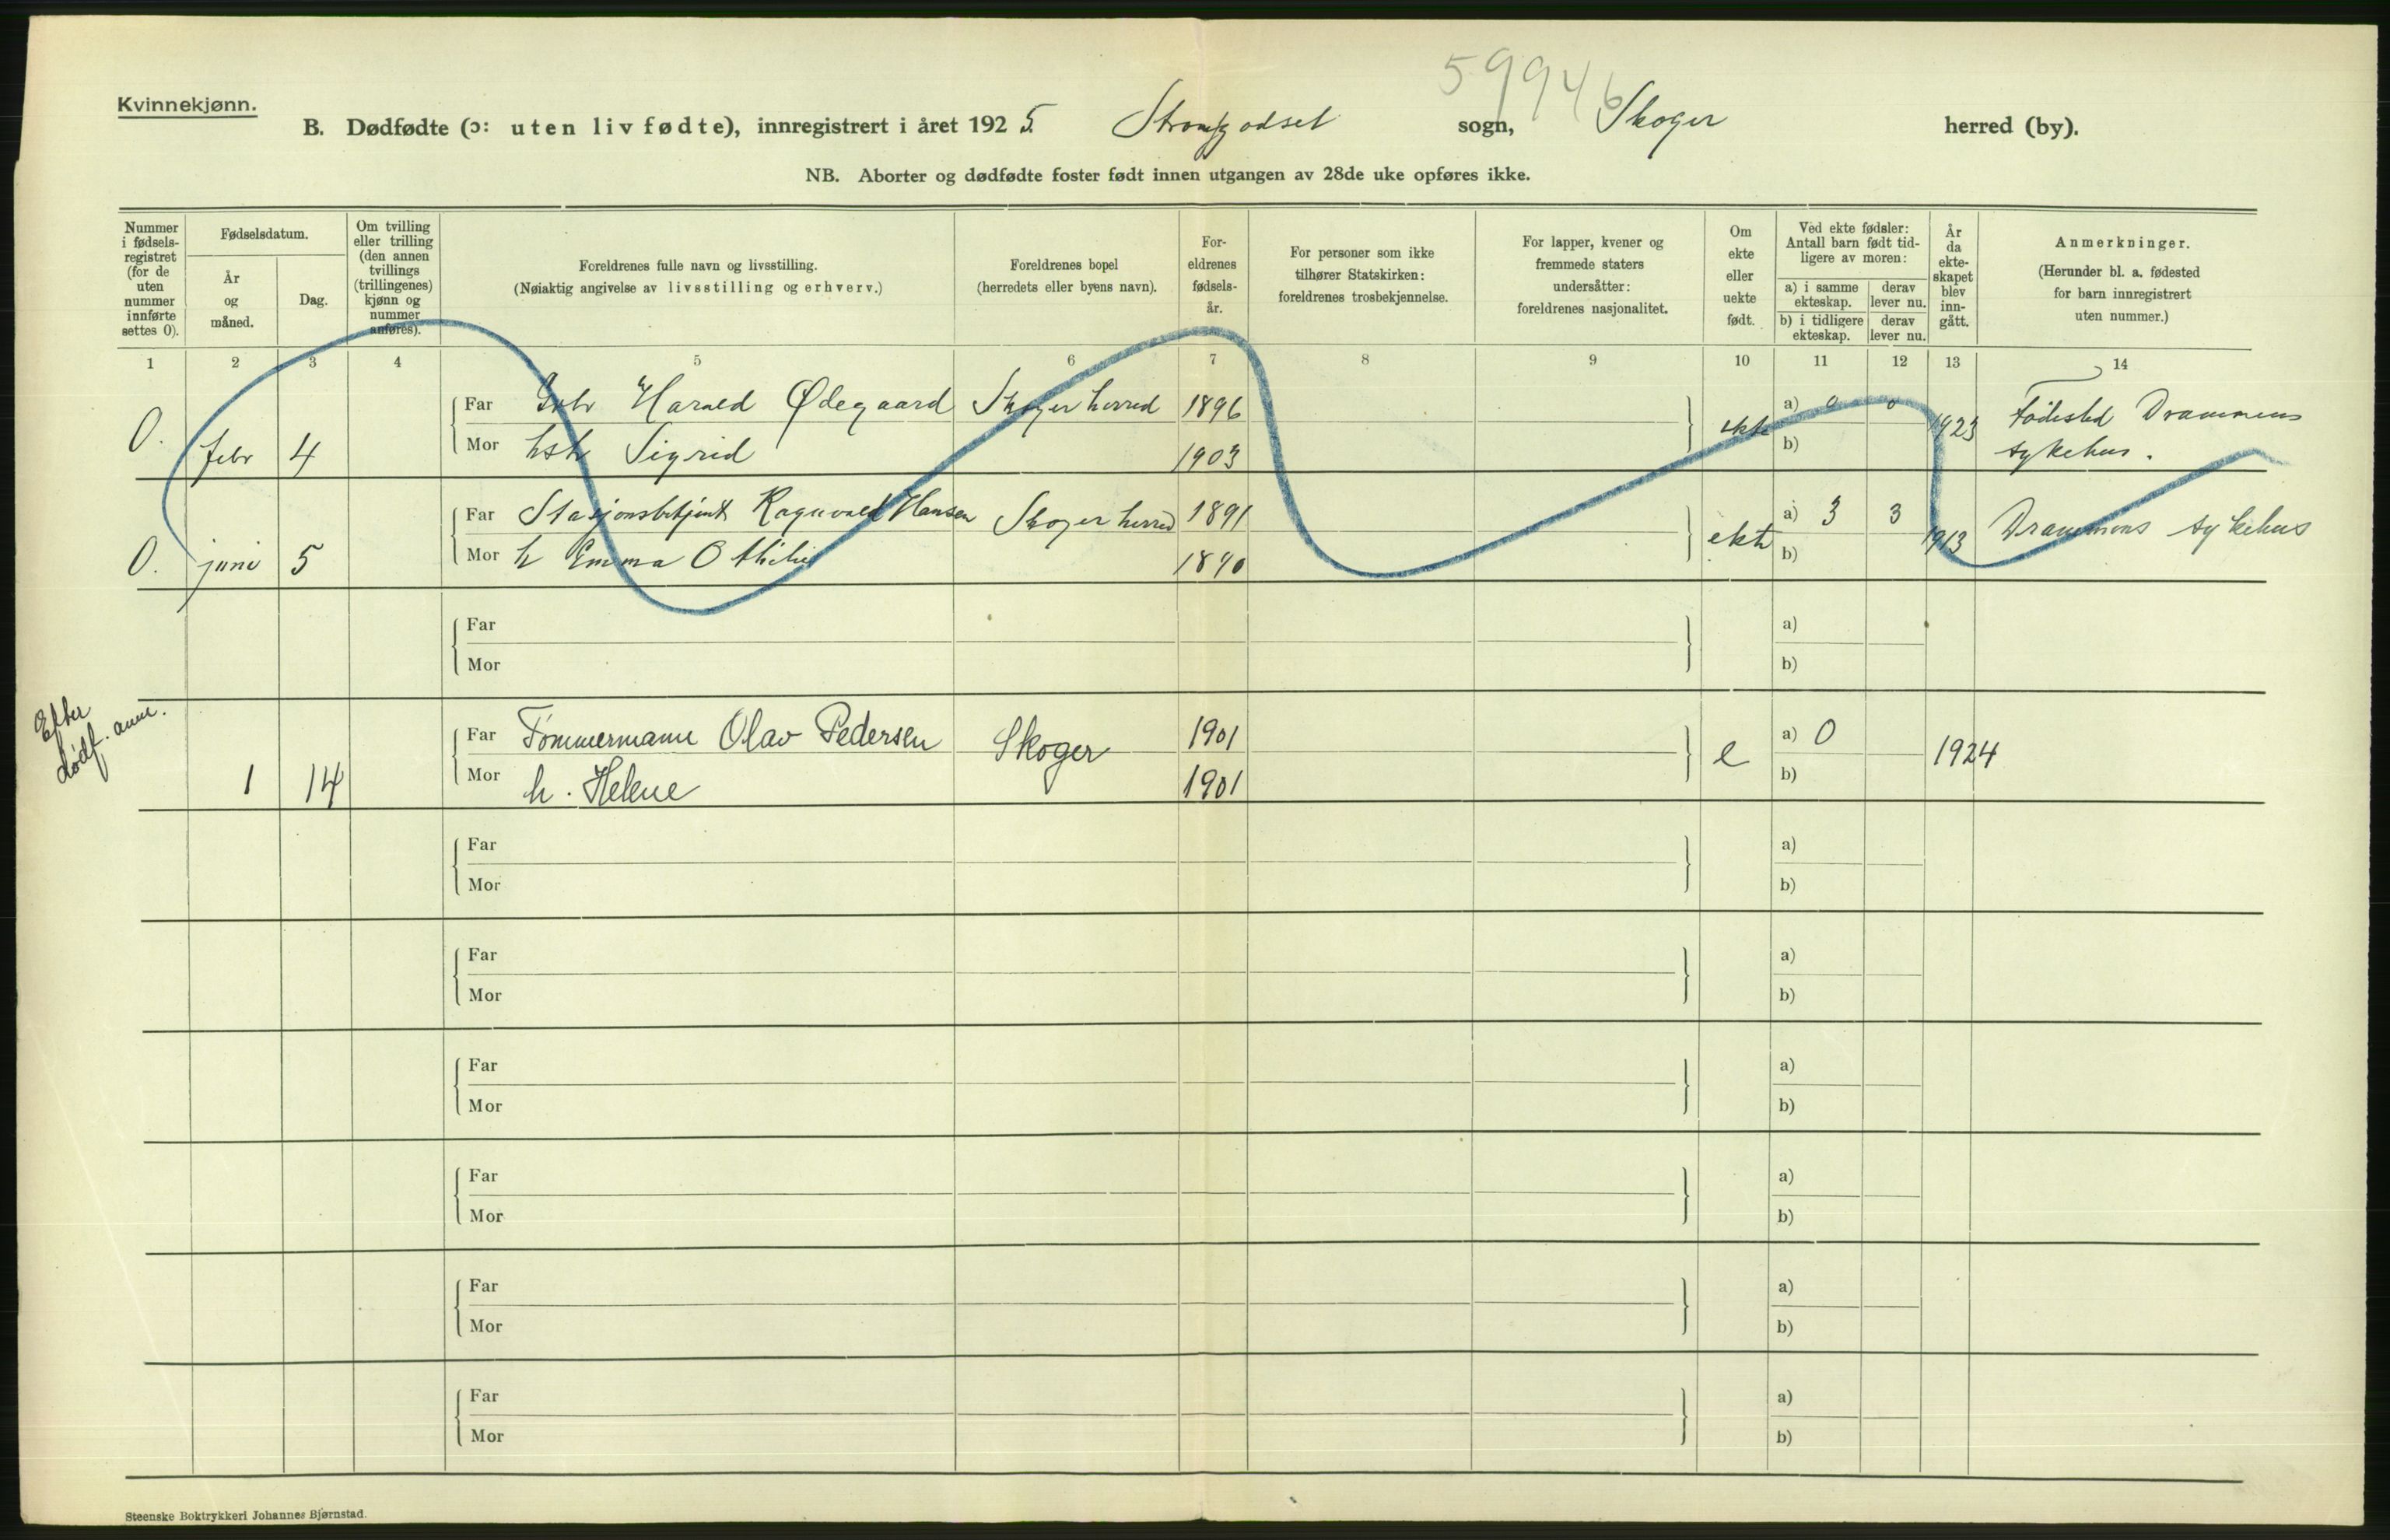 59946
Kvinnekjønn.
B. Dødfødte (ɔ: uten liv fødte), innregistrert i året 1925. Strømsgodset sogn, Skoger herred (by).
NB. Aborter og dødfødte foster født innen utgangen av 28de uke opføres ikke.
Nummer i fødsels- registret (for de uten nummer innførte settes 0).
Fødselsdatum.
År og måned.
Dag.
Om tvilling eller trilling (den annen tvillings (trillingenes) kjønn og nummer anføres).
Foreldrenes fulle navn og livsstilling.
(Nøiaktig angivelse av livsstilling og erhverv.)
Foreldrenes bopel
(herredets eller byens navn).
For- eldrenes fødsels- år.
For personer som ikke tilhører Statskirken: foreldrenes trosbekjennelse.
For lapper, kvener og fremmede staters undersåtter: foreldrenes nasjonalitet.
Om ekte eller uekte født.
Ved ekte fødsler: Antall barn født tid- ligere av moren:
a) i samme ekteskap. derav lever nu.
b) i tidligere ekteskap. derav lever nu.
År da ekte- skapet blev inn- gått.
Anmerkninger.
(Herunder bl. a. fødested for barn innregistrert uten nummer.)
1 2 3 4 5 6 7 8 9 10 11 12 13 14
0. febr 4
Far Harald Ødegaard Skoger herred 1896
Mor hstr Sigrid 1903
ekte a) 0 0
b)
1923 Fødested Drammens
sykehus.
0. juni 5
Far Stasjonsbetjent Ragnvald Hansen Skoger herred 1891
Mor h Emma Othilie 1890
ekte a) 3 3
b)
1913 Drammens sykehus
Far
Mor
a)
b)
Efter
dødf. anm.
1 14
Far Tømmermann Olav Pedersen Skoger 1901
Mor h. Helene 1901
e a) 0
b)
1924
Far
Mor
a)
b)
Far
Mor
a)
b)
Far
Mor
a)
b)
Far
Mor
a)
b)
Far
Mor
a)
b)
Far
Mor
a)
b)
Steenske Boktrykkeri Johannes Bjørnstad.